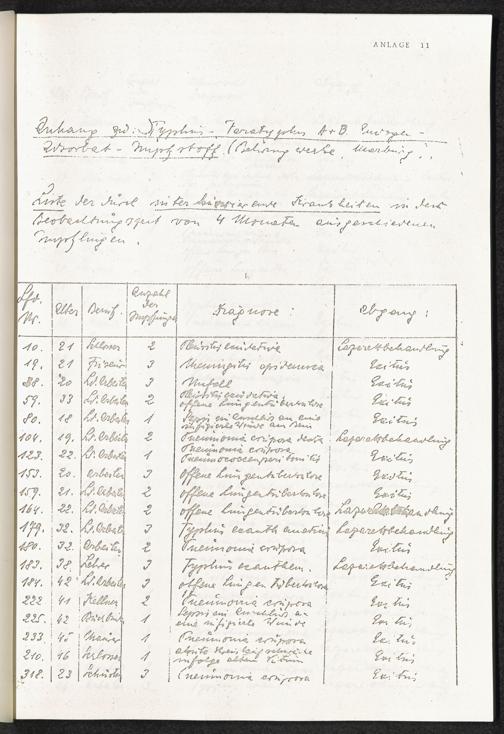 ANLAGE 11
Anhang zu: Typhus- Paratyphus A+B
Adsorbat - Impfstoff (Behring werke, Marburg)
Liste der durch interkurrierende Krankheiten in der
Beobachtungszeit von 4 Monaten ausgeschiedenen
Impflingen.
Lfd. Nr. Alter Beruf. Anzahl der Impfungen Diagnose: Abgang:
10. 21 Schlosser 2 Lazarettbehandlung
19. 21 Friseur 3 Meningitis epidemica Exitus
38. 20 Ld. Arbeiter 3 Unfall Exitus
59. 33 Ld. Arbeiter 2 offene Lungentuberkulose Exitus
80. 18 Ld. Arbeiter 1 Sepsis im Anschluß an eine infizierte Wunde Exitus
104. 19. Ld. Arbeiter 2 Pneumonia crouposa Lazarettbehandlung
123. 22. Ld. Arbeiter 1 Pneumonia crouposa Pneumococcenperitonitis Exitus
153. 20 Arbeiter 3 offene Lungentuberkulose Exitus
159. 21. Ld. Arbeiter 2 offene Lungentuberkulose Exitus
164. 22. Ld. Arbeiter 2 offene Lungentuberkulose Lazarettbehandlung
179. 32. Ld. Arbeiter 3 Typhus exanthematicus Lazarettbehandlung
180. 32. Arbeiter 2 Pneumonia crouposa Exitus
183. 38 Lehrer 3 Typhus exanthem. Lazarettbehandlung
184. 42 Ld. Arbeiter 3 offene Lungen Tuberkulose Exitus
222 41 Kellner 2 Pneumonia crouposa Exitus
225. 42 1 Sepsis im Anschluß an eine infizierte Wunde Exitus
233. 45 Maurer 1 Pneumonia crouposa Exitus
210. 46 Schlosser 1 akute Kreislaufschwäche infolge alten Vitium Exitus
318. 23 Schüler 3 Pneumonia crouposa Exitus